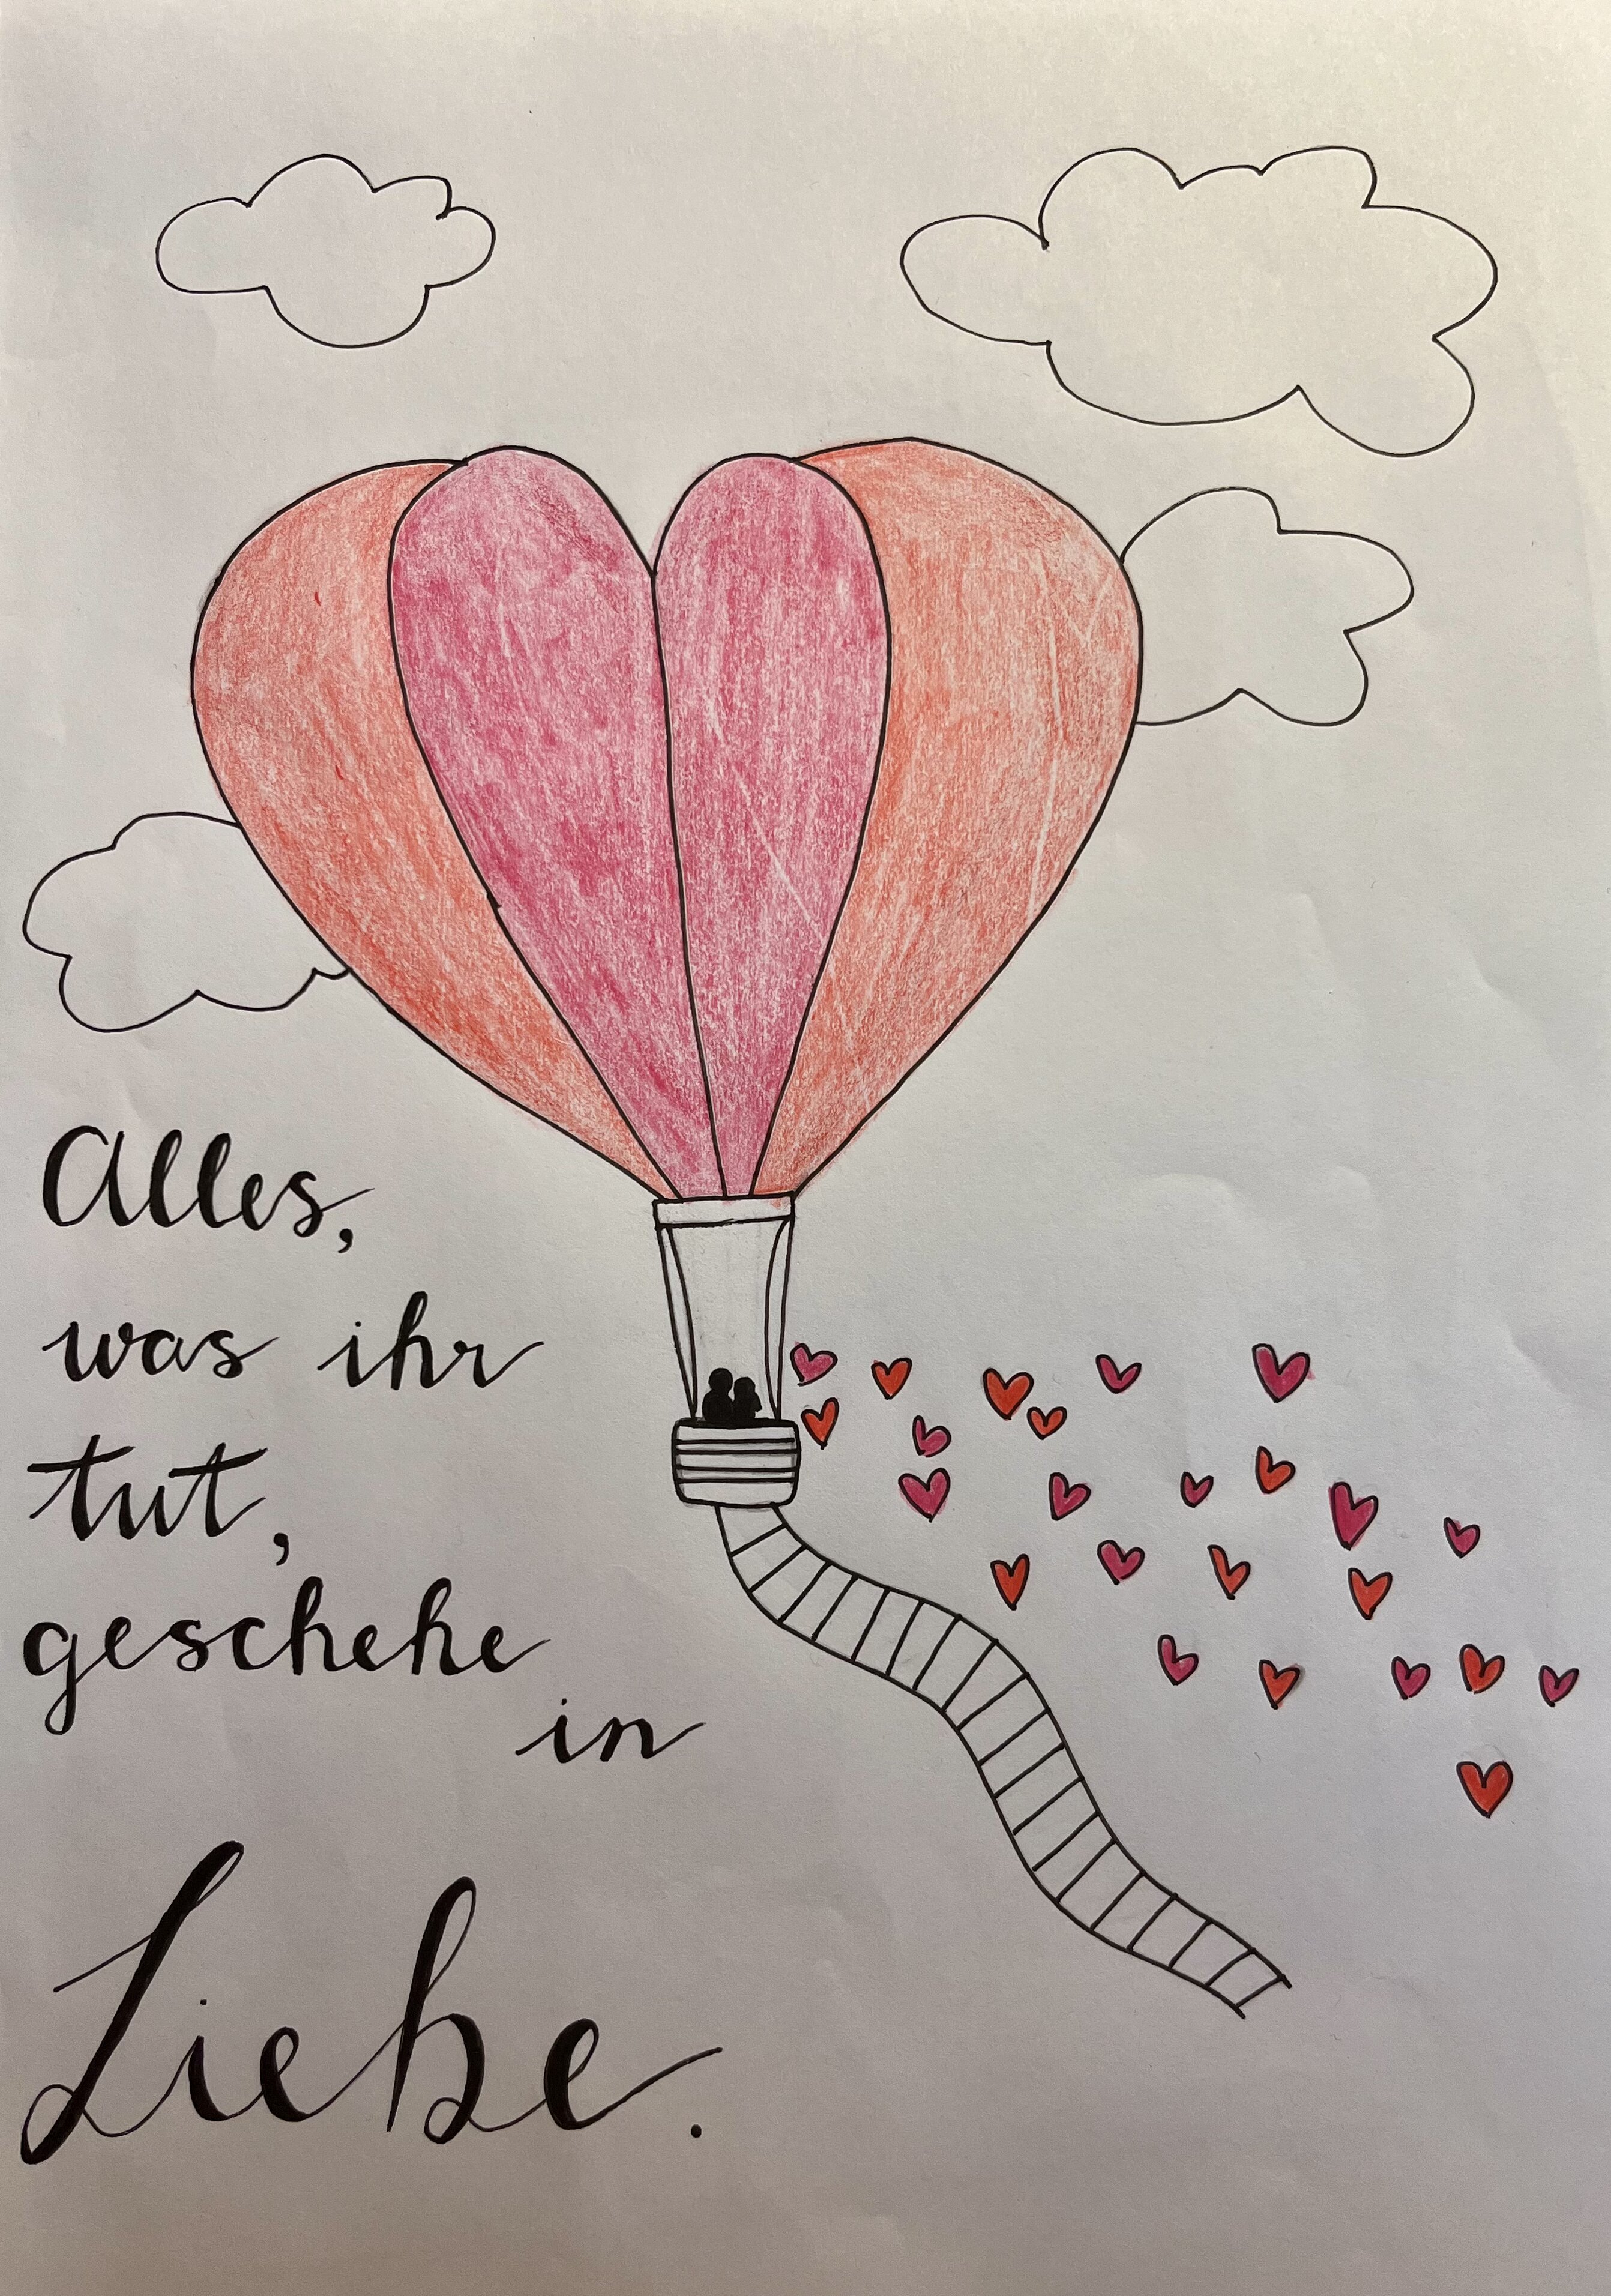 Alles,
was ihr
tut,
geschehe
in
Liebe.